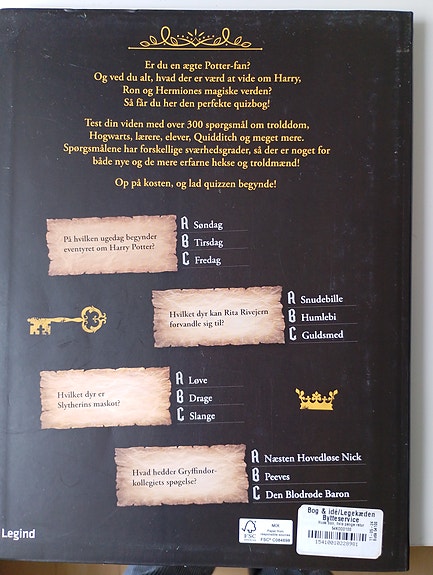 Er du en ægte Potter-fan?
Og ved du alt, hvad der er værd at vide om Harry,
Ron og Hermiones magiske verden?
Så får du her den perfekte quizbog!
Test din viden med over 300 spørgsmål om trolddom,
Hogwarts, lærere, elever, Quidditch og meget mere.
Spørgsmålene har forskellige sværhedsgrader, så der er noget for
både nye og de mere erfarne hekse og troldmænd!
Op på kosten, og lad quizzen begynde!
På hvilken ugedag begynder
eventyret om Harry Potter?
A Søndag
B Tirsdag
C Fredag
Hvilket dyr kan Rita Rivejern
forvandle sig til?
A Snudebille
B Humlebi
C Guldsmed
Hvilket dyr er
Slytherins maskot?
A Løve
B Drage
C Slange
Hvad hedder Gryffindor-
kollegiets spøgelse?
A Næsten Hovedløse Nick
B Peeves
C Den Blodrøde Baron
Legind
FSC
MIX
FSC® C084698
Bog & idé/Legekæden
Bytteservice